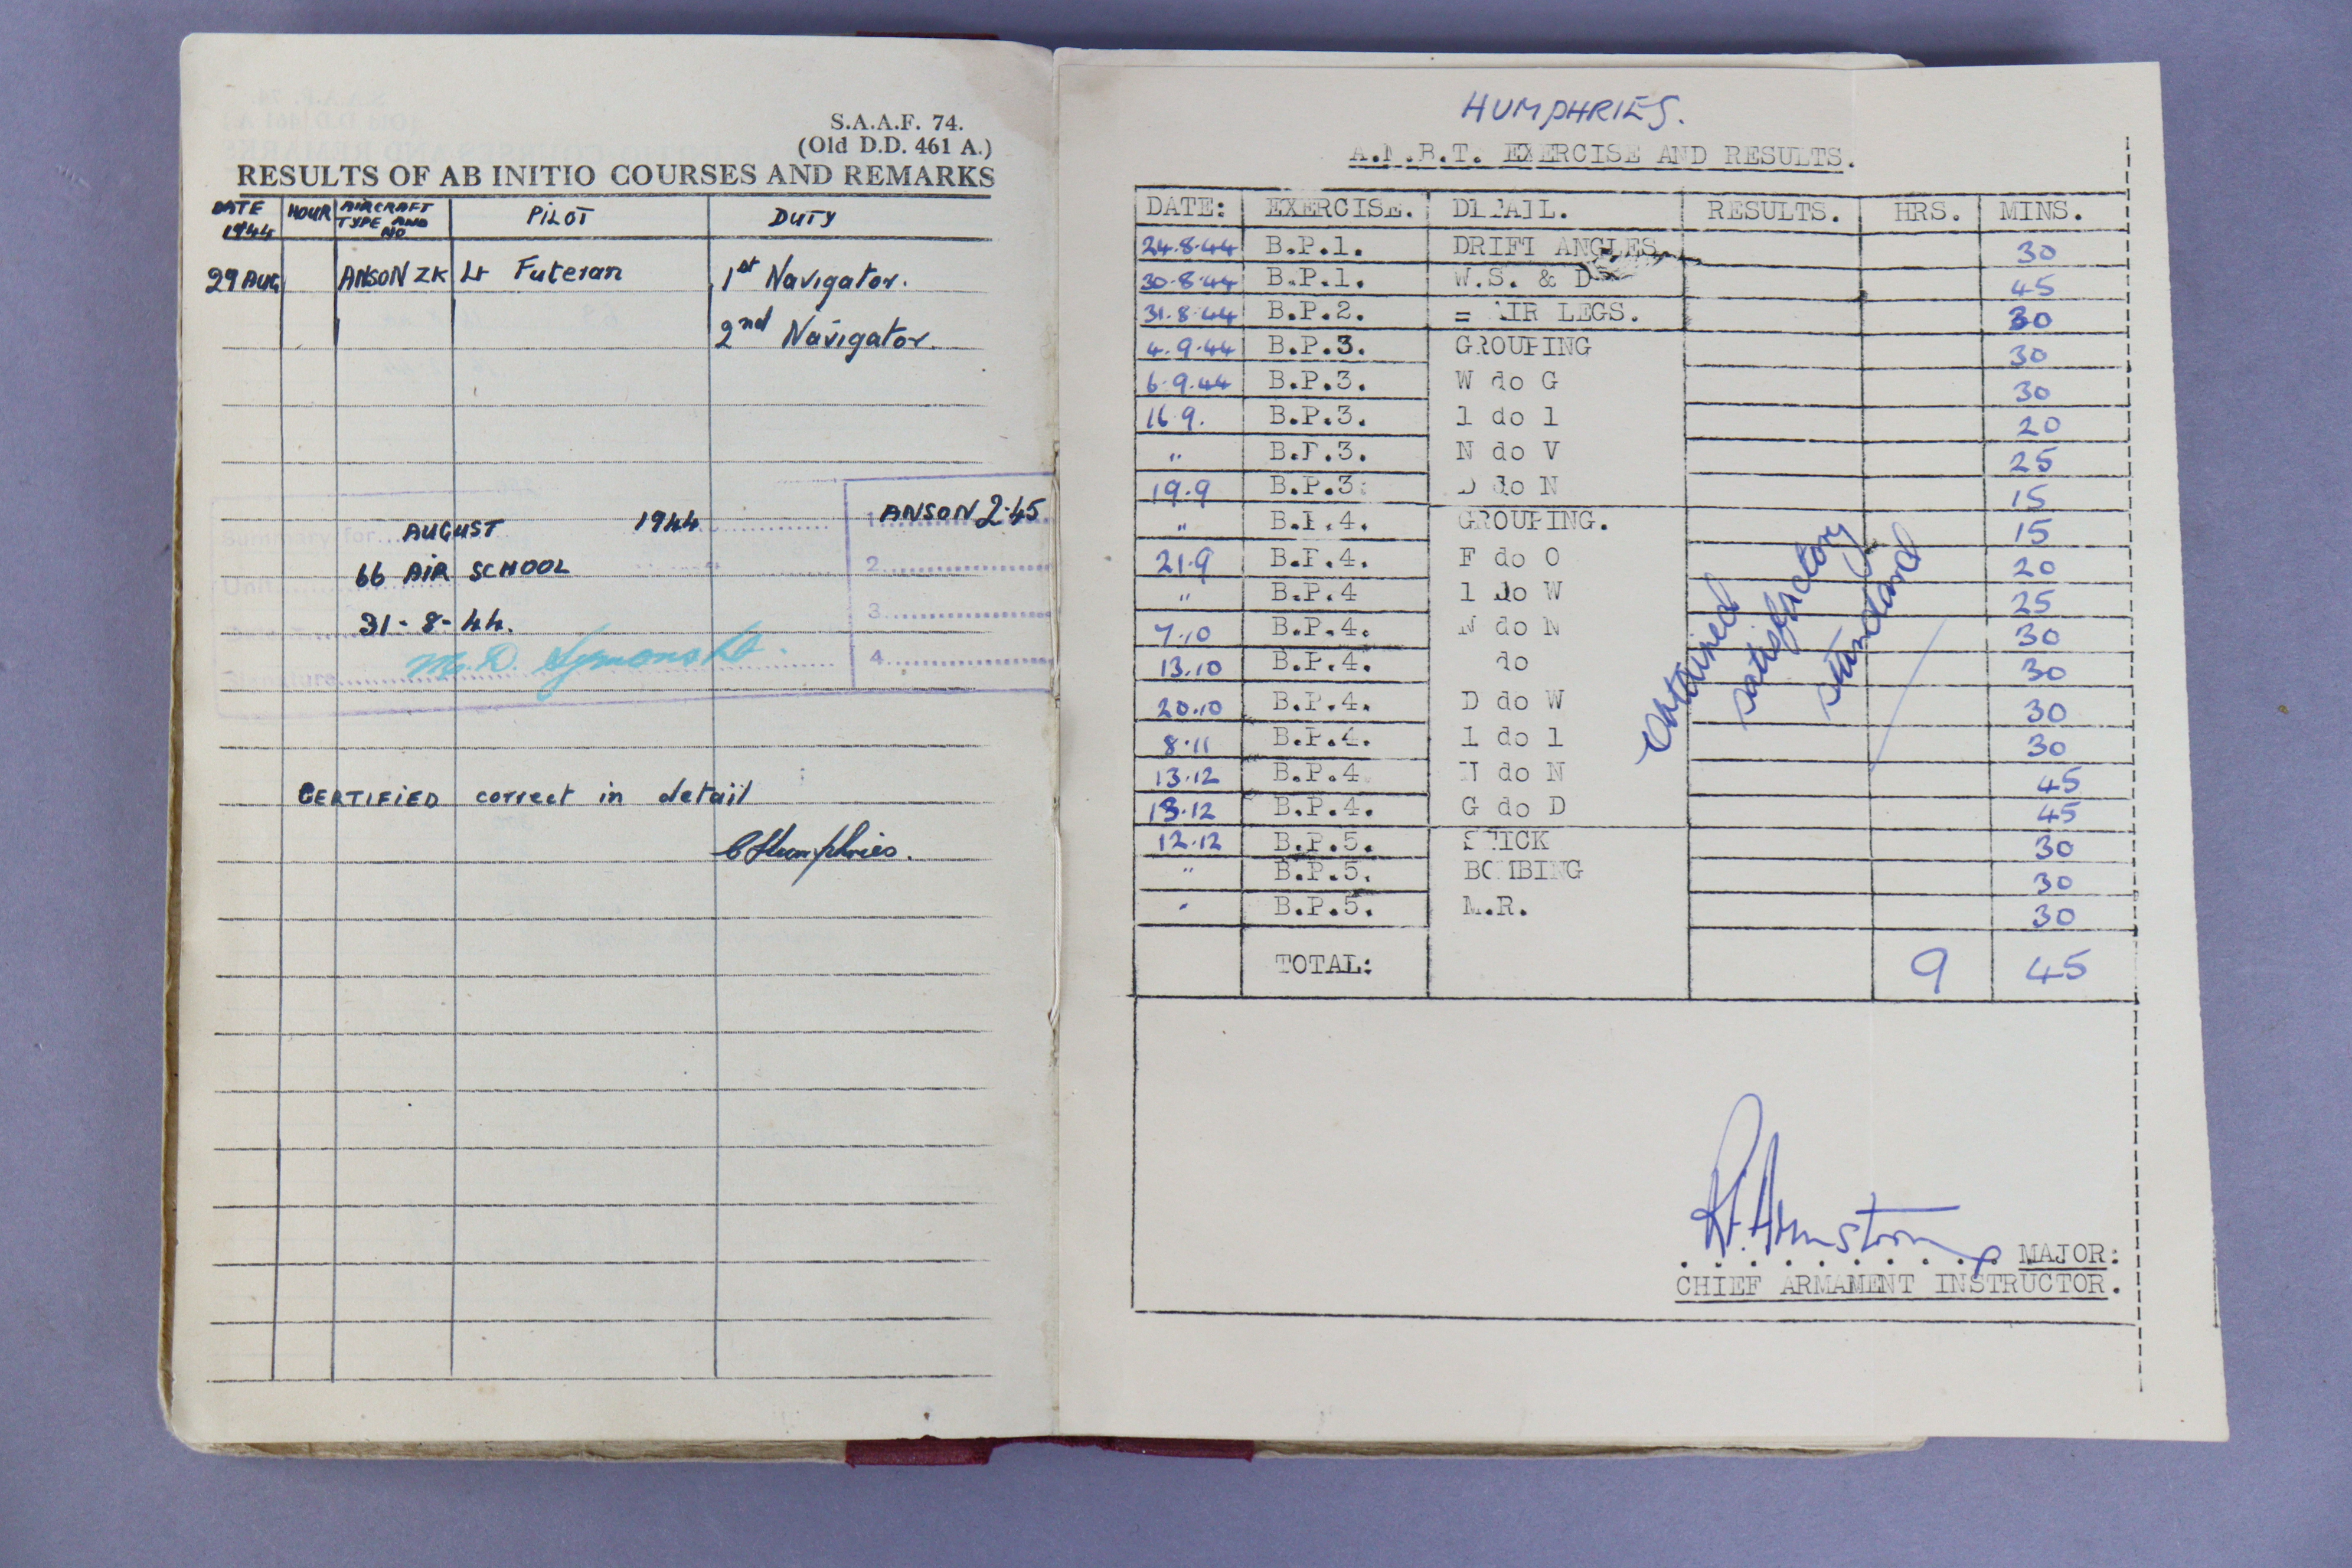 S.A.A.F. 74.
(Old D.D. 461 A.)
RESULTS OF AB INITIO COURSES AND REMARKS
DATE 1944 HOUR AIRCRAFT TYPE AND NO PILOT DUTY
29 AUG ANSON ZK Lt Futeran 1st Navigator.
2nd Navigator.
Summary for AUGUST 1944 1. ANSON 2.45
Unit 66 AIR SCHOOL 2.
31-8-44. 3.
Signature M. D. Symons Lt. 4.
CERTIFIED correct in detail
C Humphries.
HUMPHRIES.
A.M.B.T. EXERCISE AND RESULTS.
DATE: EXERCISE. DETAIL. RESULTS. HRS. MINS.
24.8.44 B.P.1. DRIFT ANGLES. 30
30.8.44 B.P.1. W.S. & D 45
31.8.44 B.P.2. = AIR LEGS. 30
4.9.44 B.P.3. GROUPING 30
6.9.44 B.P.3. W do G 30
16.9. B.P.3. l do l 20
" B.P.3. N do V 25
19.9 B.P.3. D do N 15
" B.P.4. GROUPING. 15
21.9 B.P.4. F do O 20
" B.P.4 l do W 25
7.10 B.P.4. N do N 30
13.10 B.P.4. do 30
20.10 B.P.4. D do W 30
8.11 B.P.4. l do l 30
13.12 B.P.4 N do N 45
13.12 B.P.4. G do D 45
12.12 B.P.5. STICK 30
" B.P.5. BOMBING 30
" B.P.5. M.R. 30
Obtained
satisfactory
standard
TOTAL: 9 45
R. Armstrong MAJOR:
CHIEF ARMAMENT INSTRUCTOR.